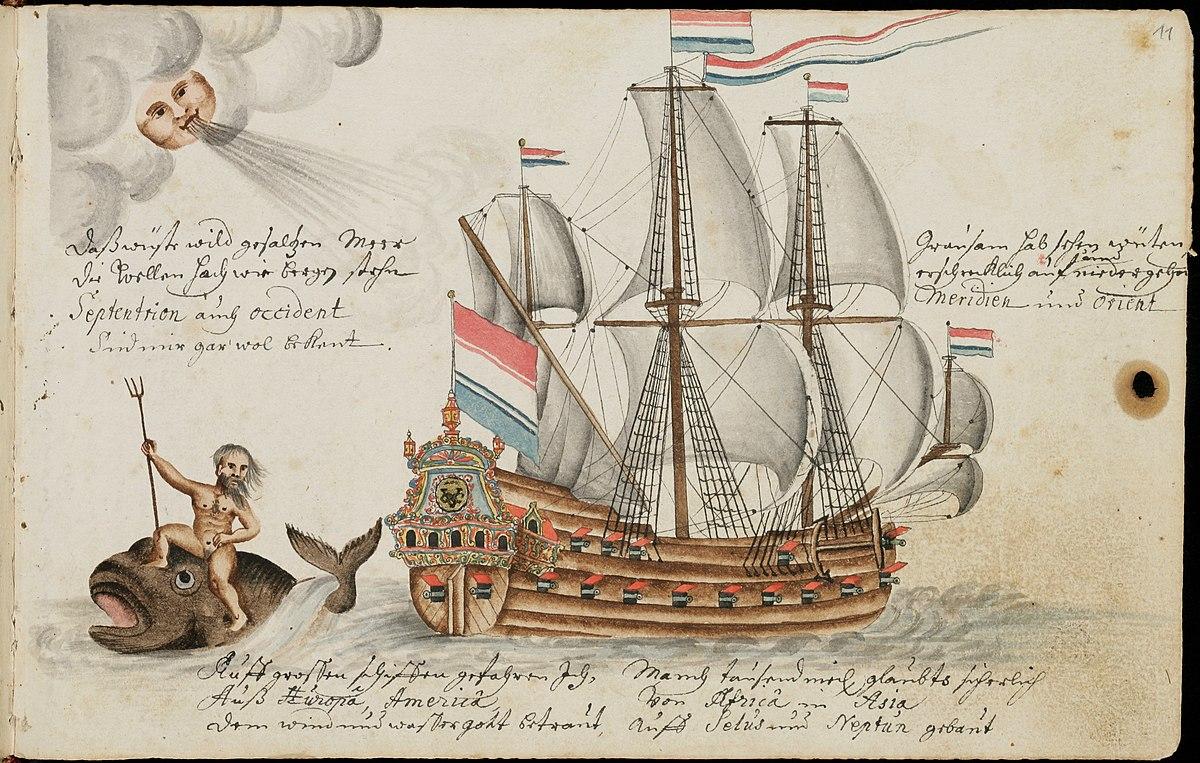 11
Daß wüste wild gesaltzen Meer
Die Wellen hoch wie bergen stehn
Septentrion auch occident
Sind mir gar wol bekent.
Grausam hab sehen wüten
erschrecklich auf und niedergehen
Meridien und Orient
Auff grossen schiffen gefahren Ich,
Auß Europa, America,
Dem wind und wassergott betraut,
Manch tausend meil glaubts sicherlich
Von Africa in Asia
Auffs Selus und Neptun gebaut